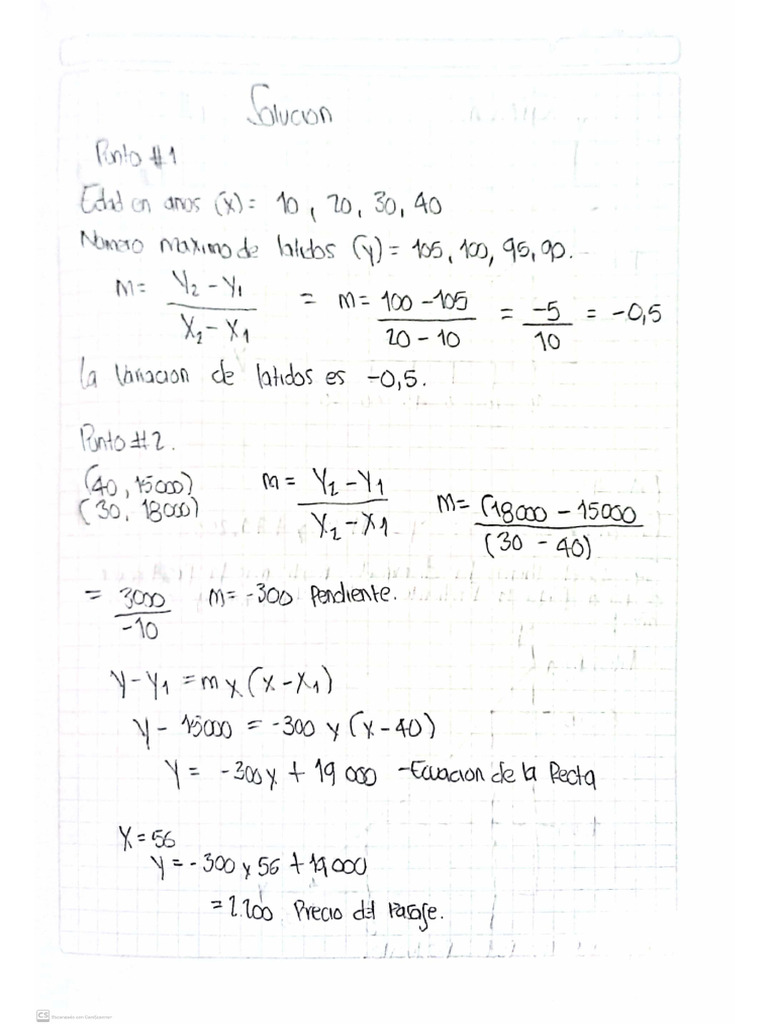 Solucion
Punto #1
Edad en anos (x) = 10, 20, 30, 40
Numero maximo de latidos (y) = 105, 100, 95, 90.
m = Y₂ - Y₁ / X₂ - X₁ = m = 100 - 105 / 20 - 10 = -5 / 10 = -0,5
La Variacion de latidos es -0,5.
Punto #2.
(40, 15000)
(30, 18000)
m = Y₂ - Y₁ / X₂ - X₁
m = (18000 - 15000 / (30 - 40)
= 3000 / -10 m = -300 Pendiente.
y - y₁ = m x (x - x₁)
y - 15000 = -300 x (x - 40)
y = -300x + 19 000 - Ecuacion de la Recta
X = 56
y = -300 x 56 + 19000
= 2.200 Precio del Pasaje.
CS Escaneado con CamScanner